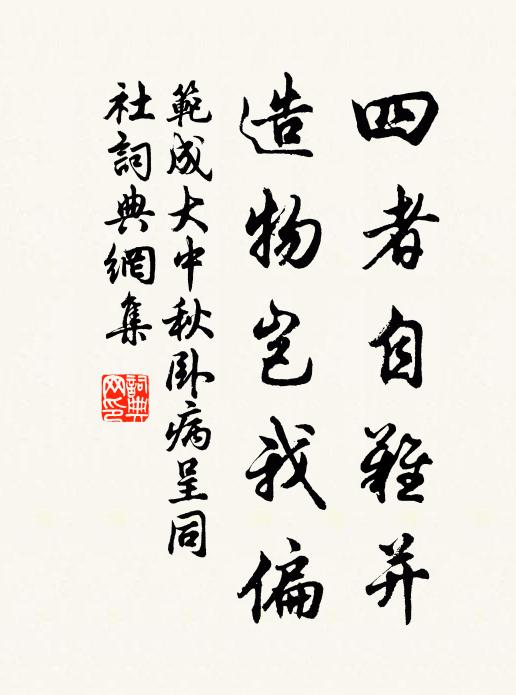 四者自難并
造物豈我偏
範成大中秋卧病呈同
社詞典網集
詞典
网印